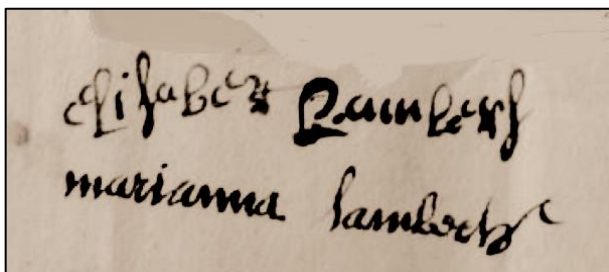 elisabet Lamberts
marianna lamberts